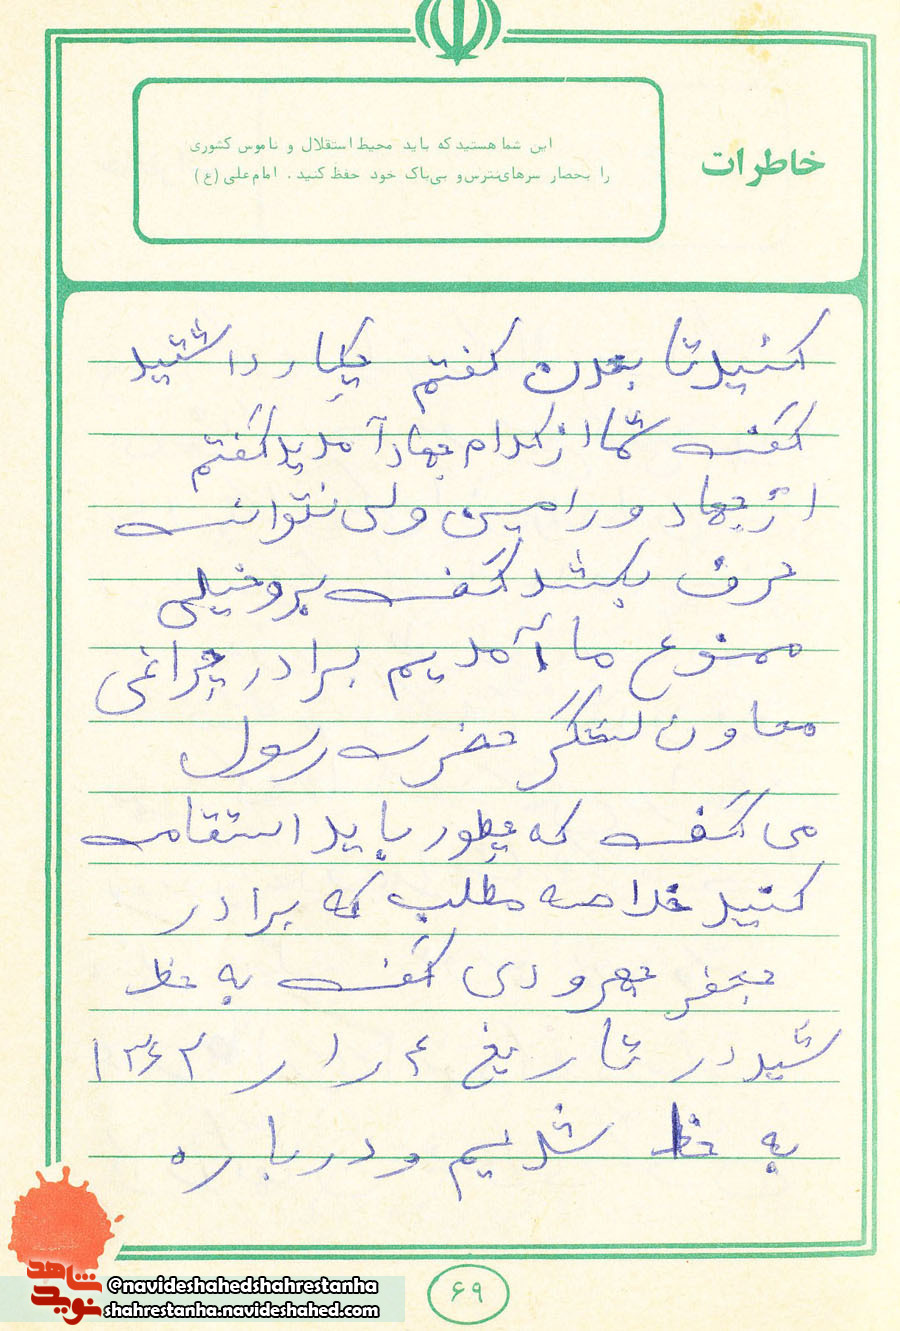 خاطرات
این شما هستید که باید محیط استقلال و ناموس کشوری
را بحصار سرهای نترس و بی‌باک خود حفظ کنید . امام علی (ع)
کنید تا بعدن گفتم چکار داشتید
گفت شما از کدام جهاد آمدید گفتم
از جهاد ورامین ولی نتوانست
حرف بکشد گفت برو خیلی
ممنوع ما آمدیم برادر چراغی
معاون لشگر حضرت رسول
می گفت که چطور باید استقامت
کنید خلاصه مطلب که برادر
جعفر جهرودی گفت به خط
شید در تاریخ ۴ ر ۱ ر ۱۳۶۲
به خط شدیم و درباره
۶۹
شاهد
نوید
@navideshahedshahrestanha
shahrestanha.navideshahed.com